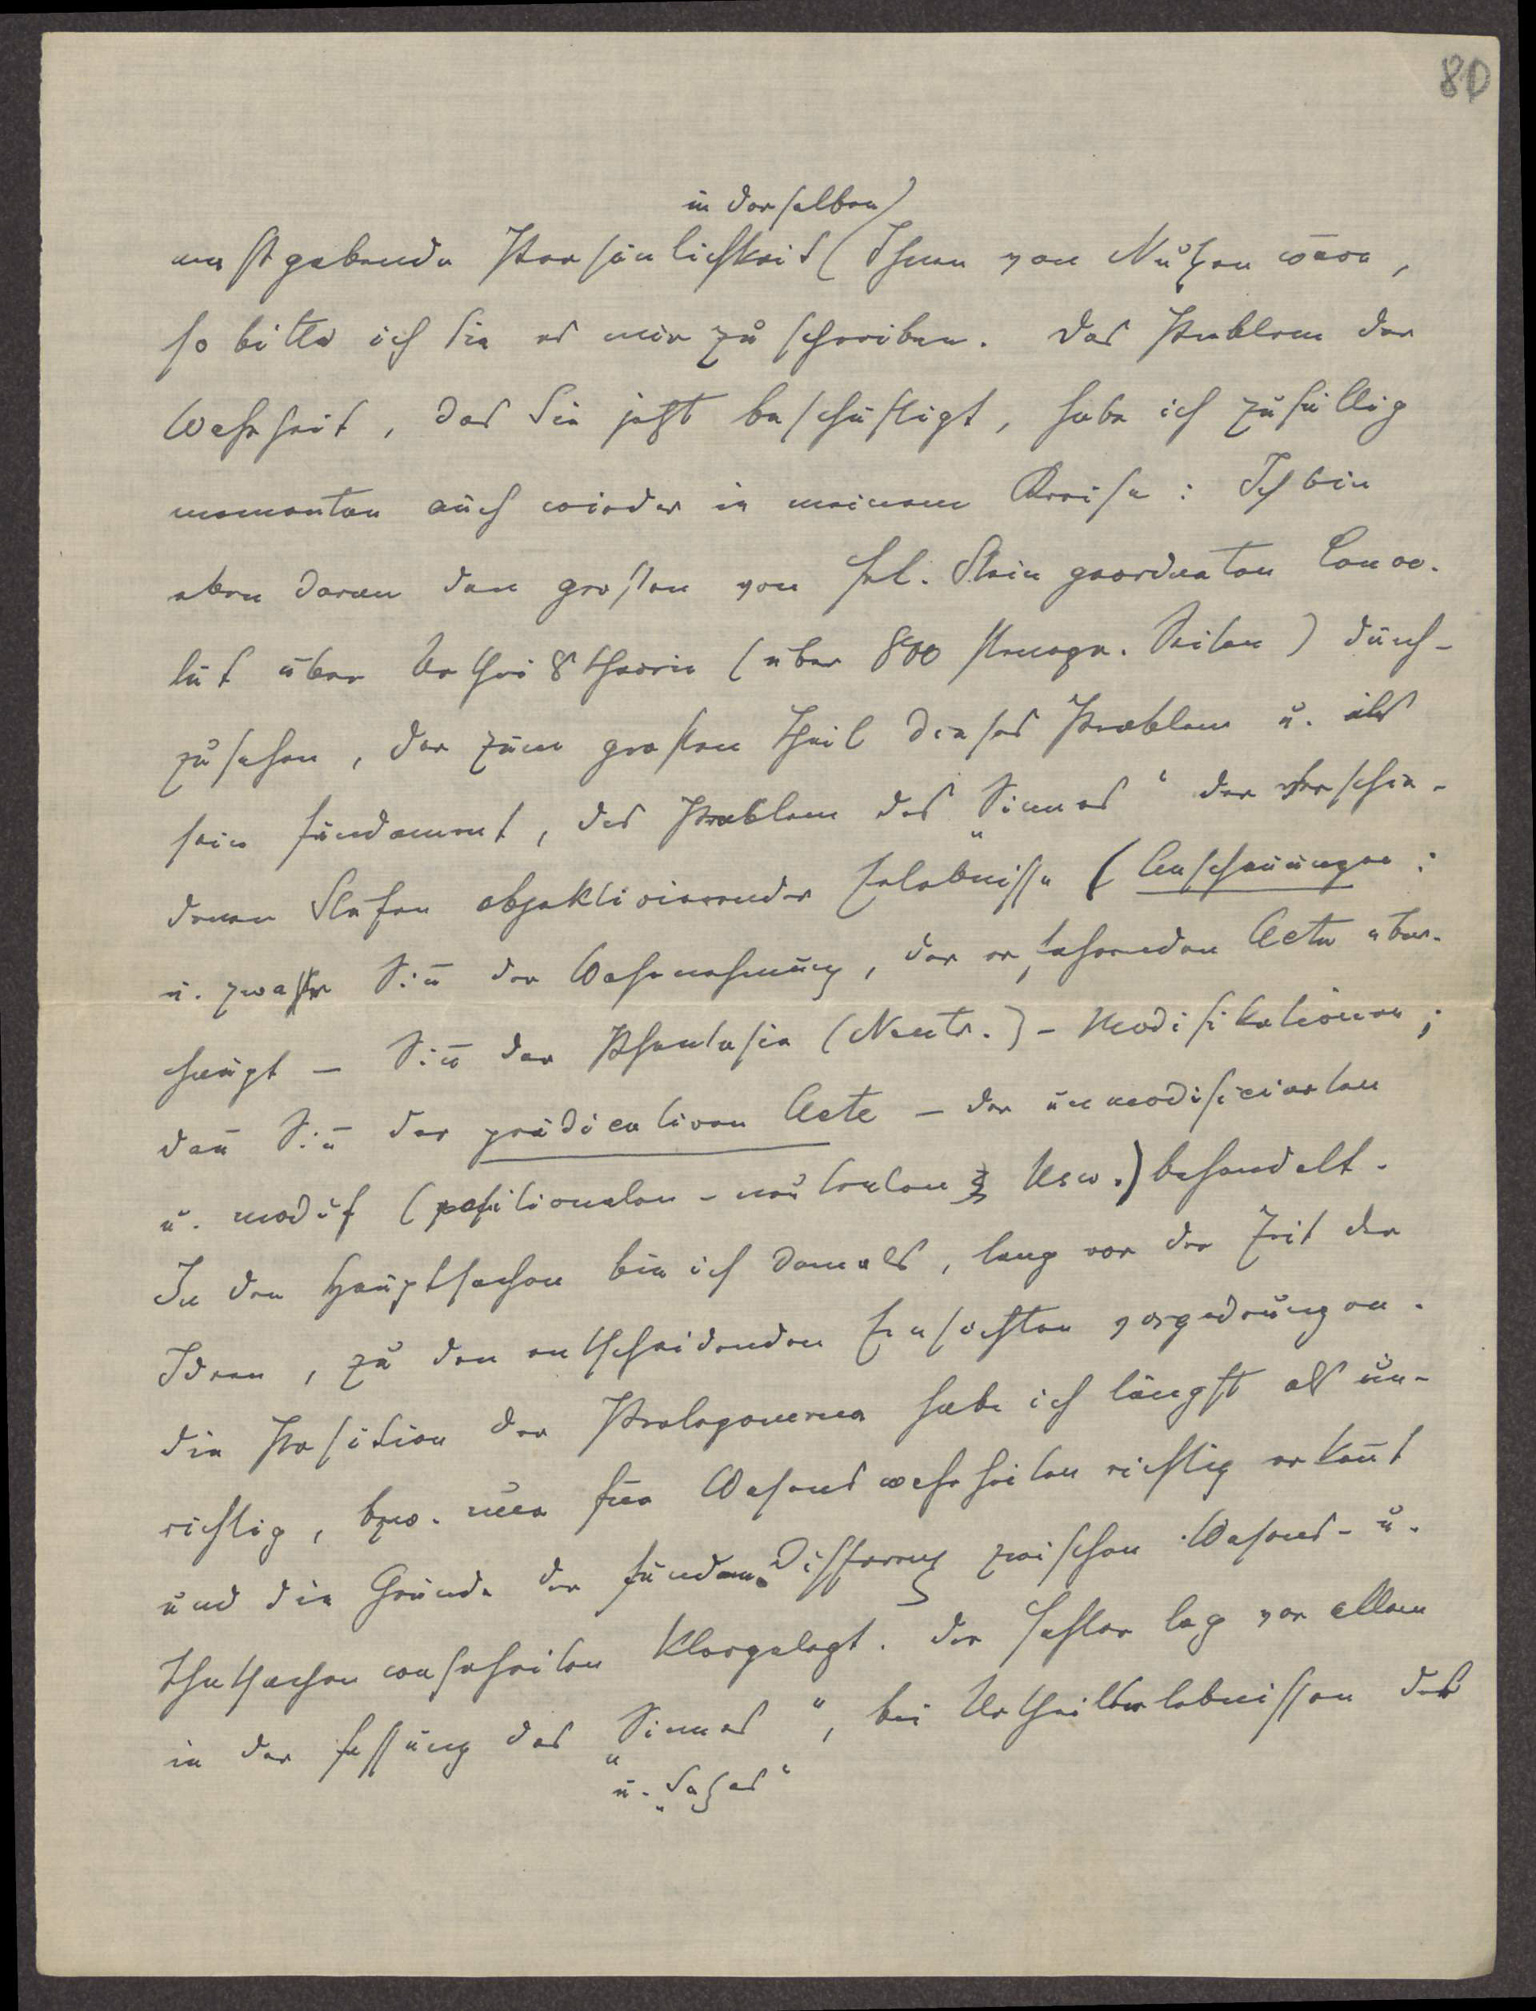 80
in derselben
maßgebende Persönlichkeit (Ihnen von Nutzen wäre,
so bitte ich Sie es mir zu schreiben. Das Problem der
Wahrheit, das Sie jetzt beschäftigt, habe ich zufällig
momentan auch wieder in meinem Kreise: Ich bin
eben daran den großen von Frl. Stein geordneten Convo-
lut über Urtheilstheorie (über 800 stenogr. Seiten) durch-
zusehen, der zum großen Theil dieses Problem u. als
sein Fundament, das Problem des „Sinnes“ der verschie-
denen Stufen objektivierender Erlebnisse (Anschauungen:
u. zwar Siñ der Wahrnehmung, der erfahrenden Acte über-
haupt – Siñ der Phantasie (Neutr.) – Modifikationen;
dañ Siñ der prädicativen Acte – der unmodificierten
u. modif (positionalen – neutralen Usw.) behandelt.
In den Hauptsachen bin ich damals, lang vor der Zeit der
Ideen, zu den entscheidenden Einsichten vorgedrungen.
Die Position der Prolegomena habe ich längst als un-
richtig, bzw. nur für Wesenswahrheiten richtig erkañt
und die Gründe der fundam. Differenz zwischen Wesens- u.
Thatsachenwahrheiten klargelegt. Der Fehler lag vor allem
in der Fassung des „Sinnes“, bei Urtheilserlebnissen des
u. „Satzes“